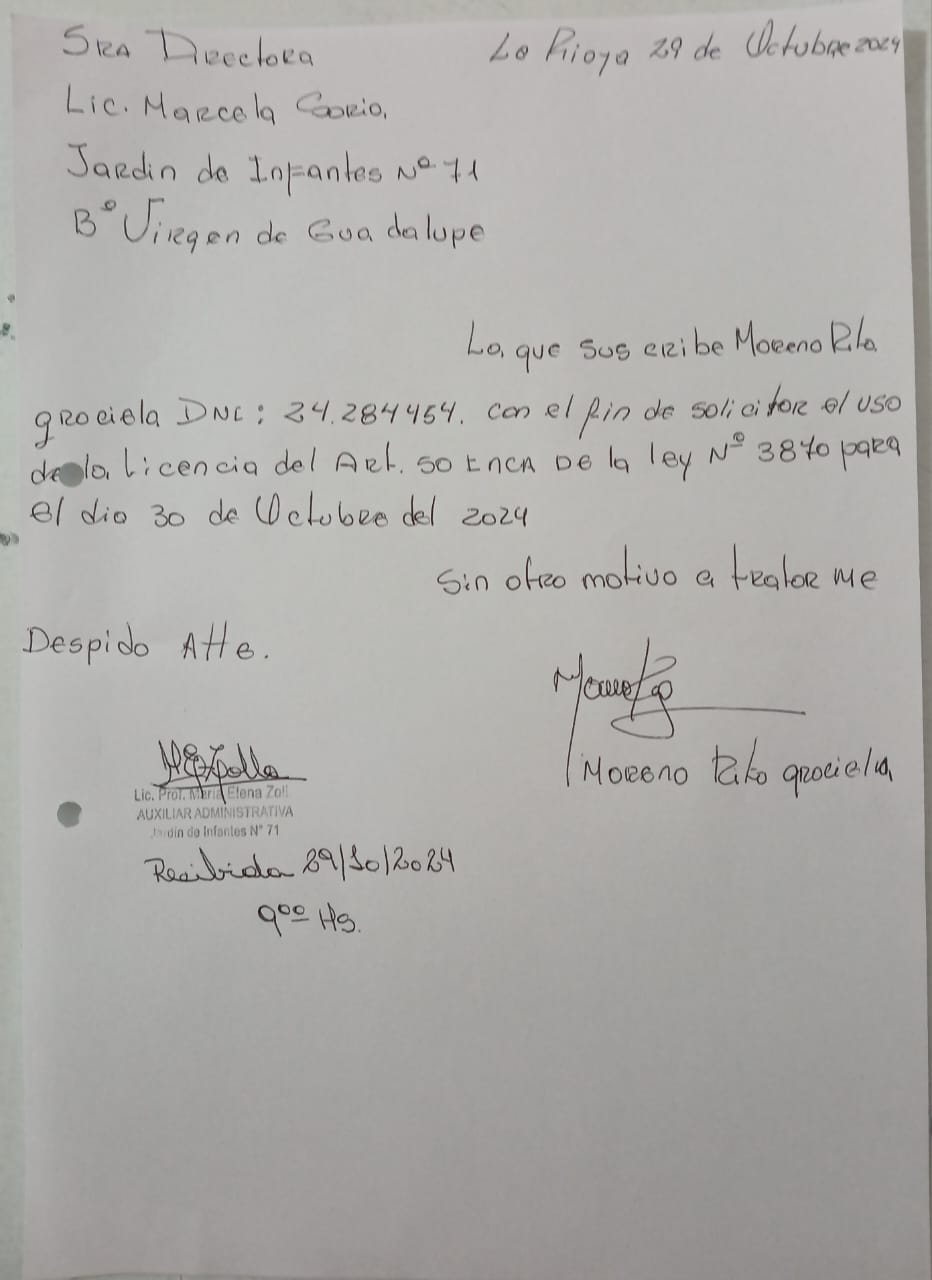 Sra Directora
La Rioja 29 de Octubre 2024
Lic. Marcela
Jardin de Infantes Nº 71
Bº Virgen de Guadalupe
La que suscribe Moreno Rita
graciela DNI: 24.284454. con el fin de solicitar el uso
de la licencia del Art. 50 de la ley Nº 3870 para
el dia 30 de Octubre del 2024
Sin otro motivo a tratar me
Despido Atte.
Moreno Rita graciela
Lic. Prof. María Elena Zoll
AUXILIAR ADMINISTRATIVA
Jardín de Infantes N° 71
Recibida 29/10/2024
9⁰⁰ Hs.